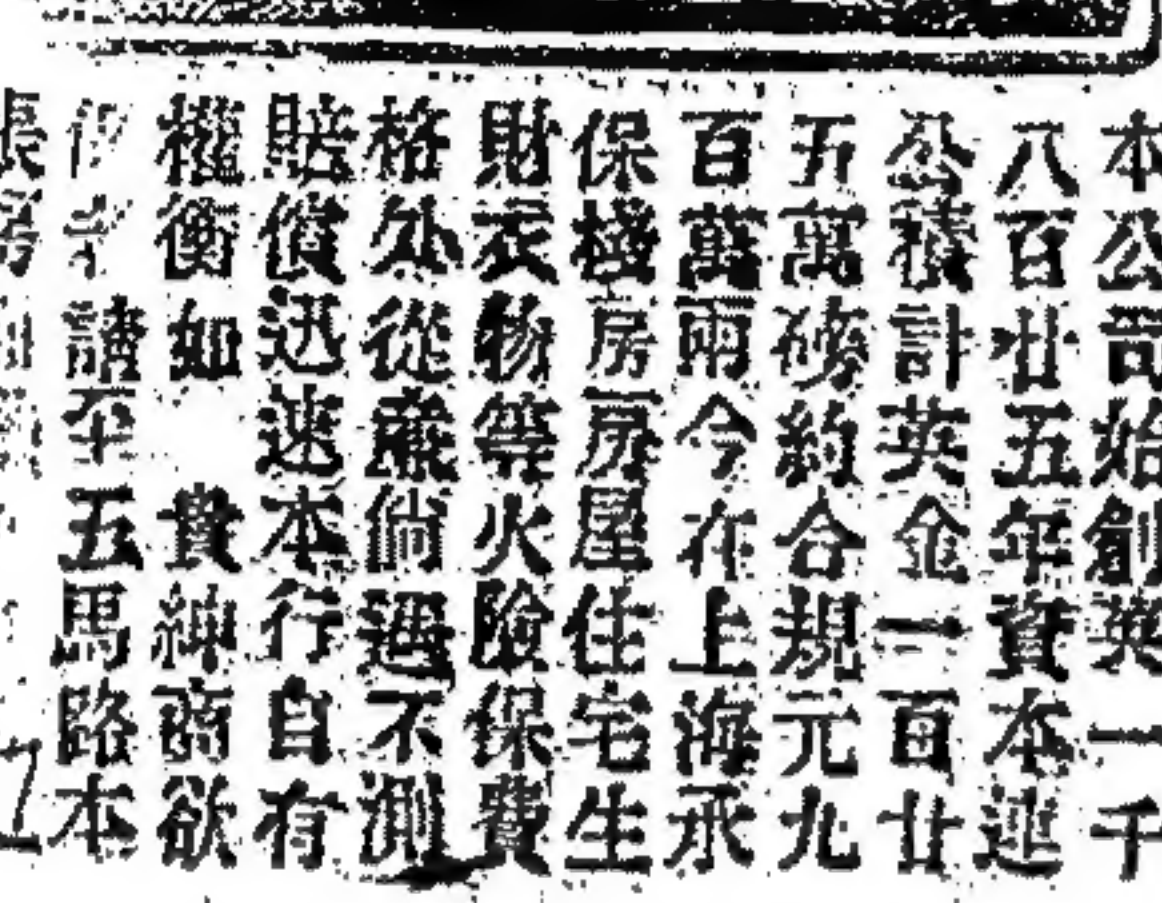 本公司始創英一千
八百廿五年資本連
公積計英金一百廿
五萬磅約合規元九
百萬兩今在上海承
保棧房房屋住宅生
財衣物等火險保費
格外從廉倘遇不測
賠償迅速本行自有
權衡如 貴紳商欲
請至五馬路本